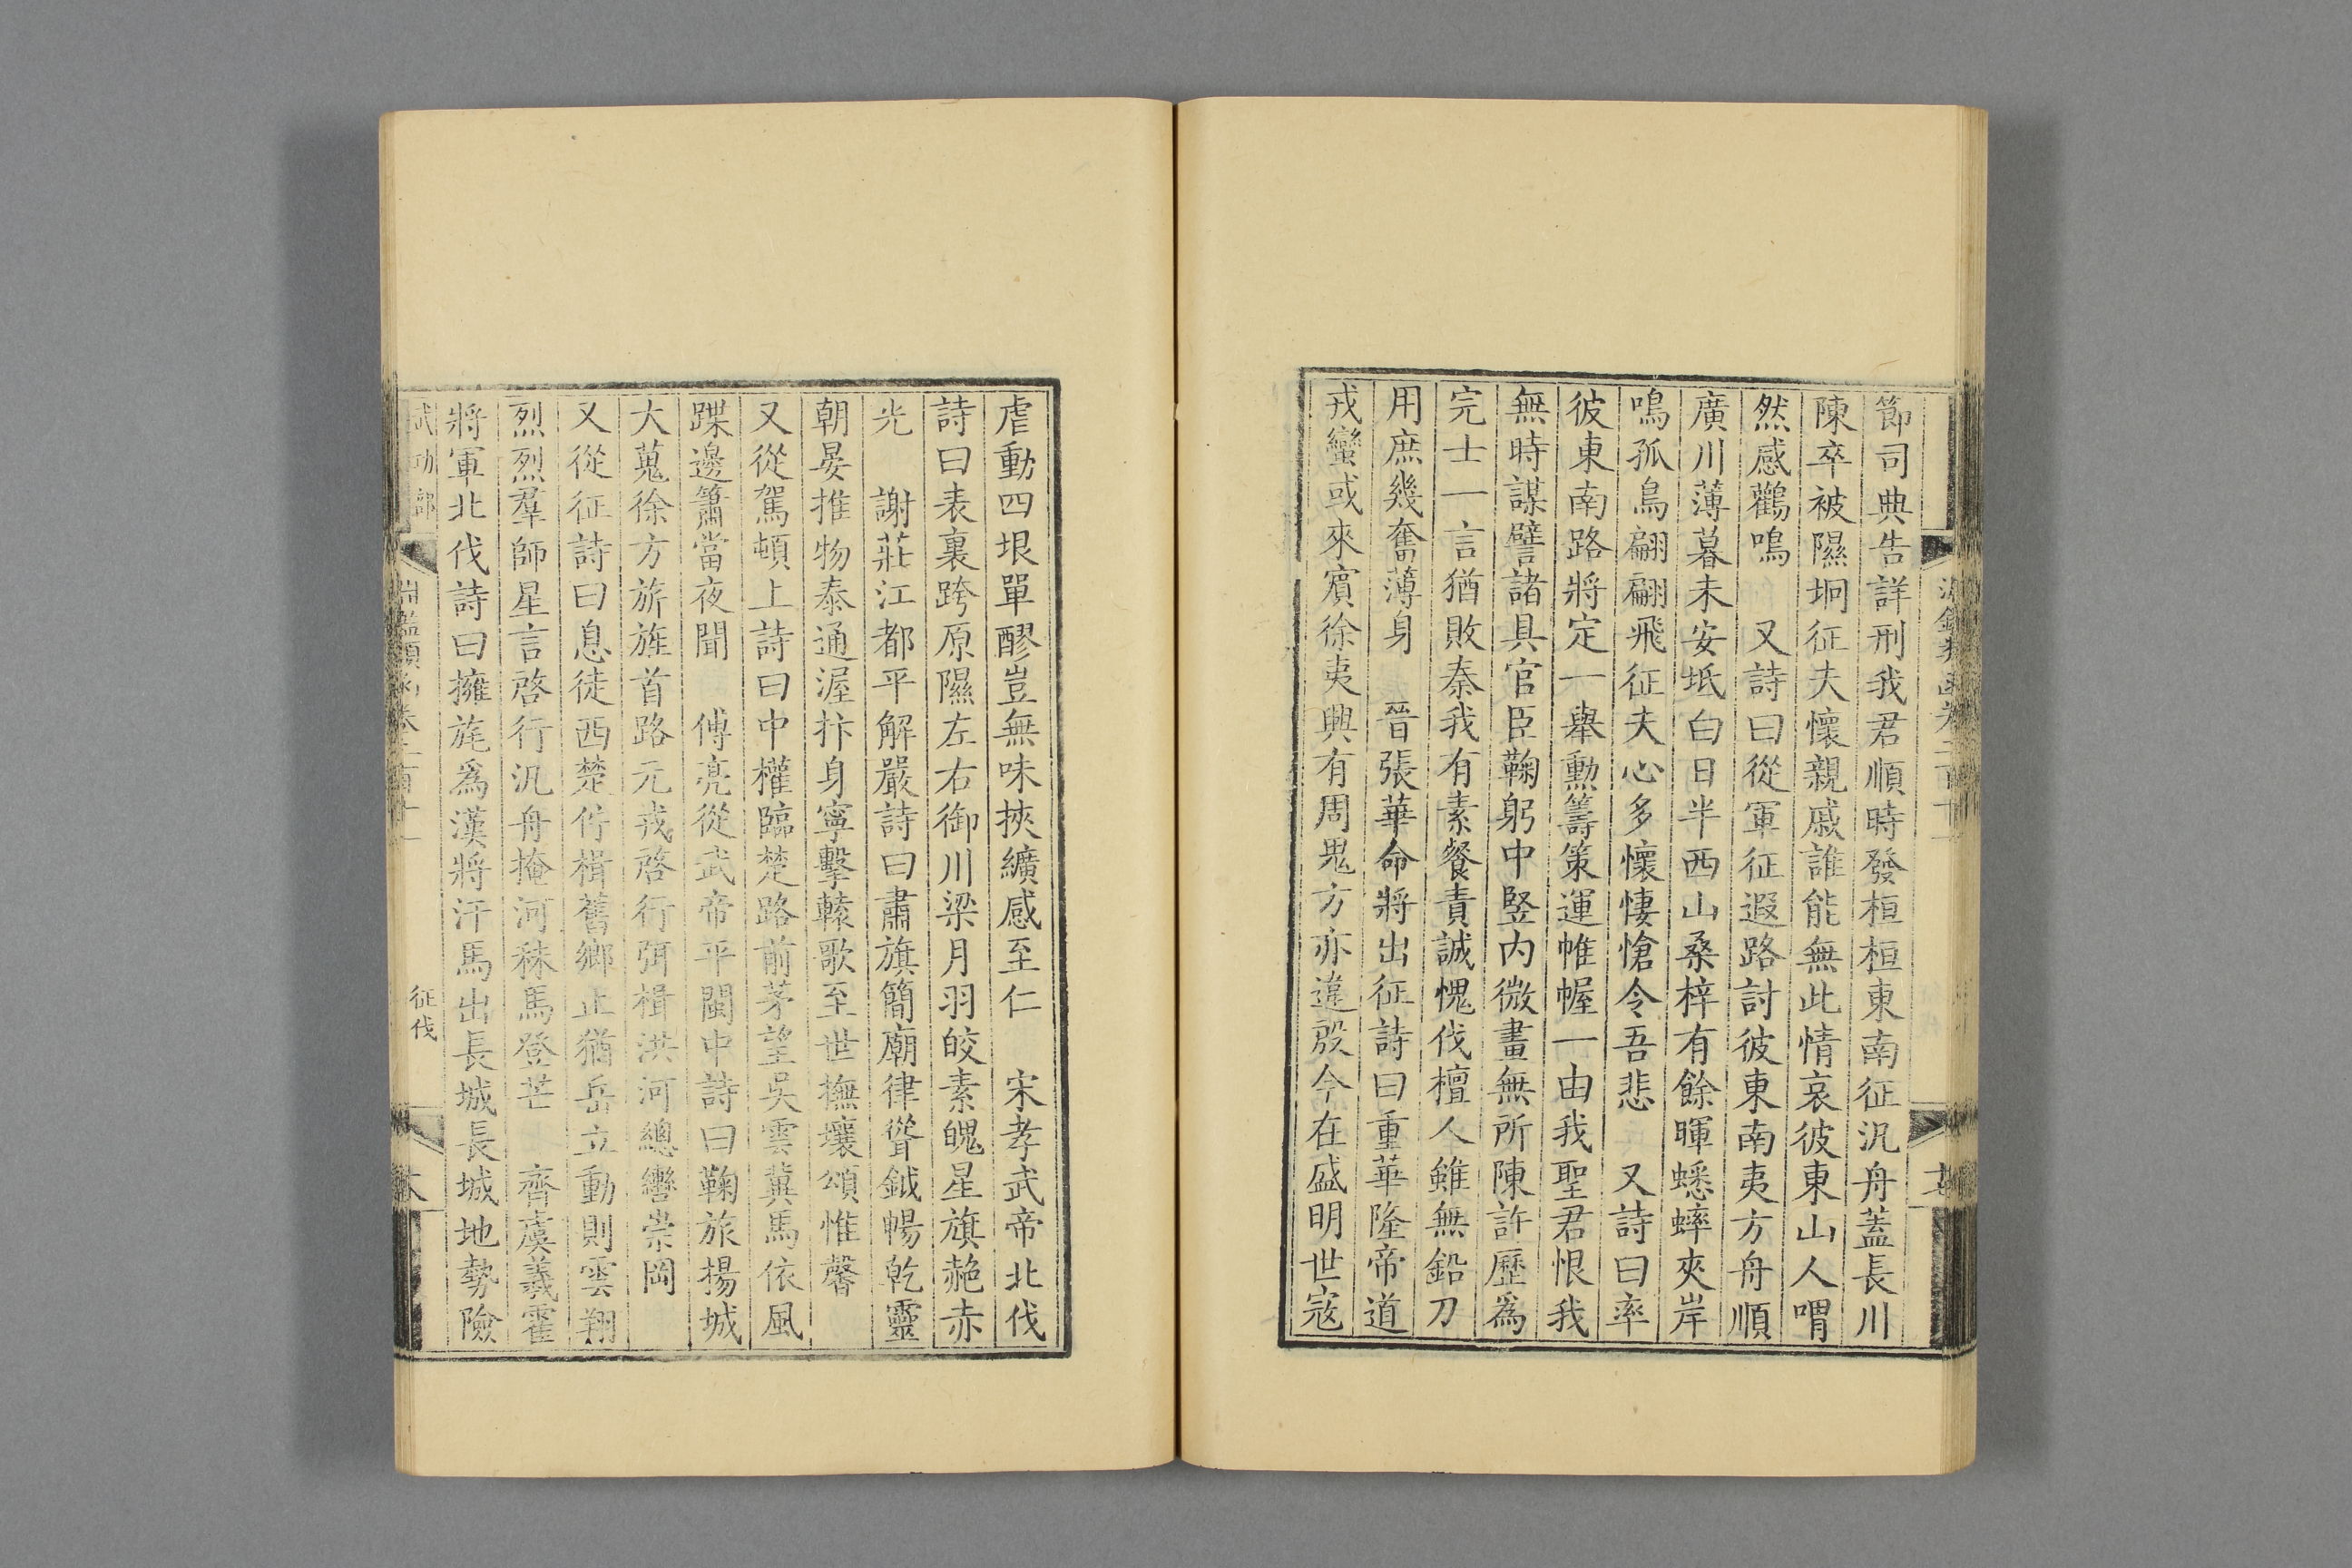 節司典告詳刑我君順時發桓桓東南征汎舟蓋長川
陳卒被隰坰征夫懷親戚誰能無此情哀彼東山人喟
然感鸛鳴　又詩曰從軍征遐路討彼東南夷方舟順
廣川薄暮未安坻白日半西山桑梓有餘暉蟋蟀夾岸
鳴孤鳥翩翩飛征夫心多懷悽愴令吾悲　又詩曰率
彼東南路將定一舉勳籌策運帷幄一由我聖君恨我
無時謀譬諸具官臣鞠躬中堅内微畫無所陳許歷爲
完士一言猶敗秦我有素餐責誠愧伐檀人雖無鉛刀
用庶幾奮薄身　晉張華命將出征詩曰重華隆帝道
戎蠻或來賓徐夷興有周鬼方亦違殷今在盛明世寇
虐動四垠單醪豈無味挾纊感至仁　宋孝武帝北伐
詩曰表裏跨原隰左右御川梁月羽皎素魄星旗赩赤
光　謝莊江都平解嚴詩曰肅旗簡廟律聳鉞暢乾靈
朝晏推物泰通渥抃身寧擊轅歌至世撫壤頌惟馨
又從駕頓上詩曰中權臨楚路前茅望吳雲冀馬依風
蹀邊簫當夜聞　傅亮從武帝平閩中詩曰鞠旅揚城
大蒐徐方旂旌首路元戎啓行弭楫洪河總轡崇岡
又從征詩曰息徒西楚佇楫舊鄉止猶岳立動則雲翔
烈烈羣師星言啓行汎舟掩河秣馬登芒　齊虞羲霍
將軍北伐詩曰擁旄爲漢將汗馬出長城長城地勢險
武功部　淵鑑類函卷二百十一　征伐